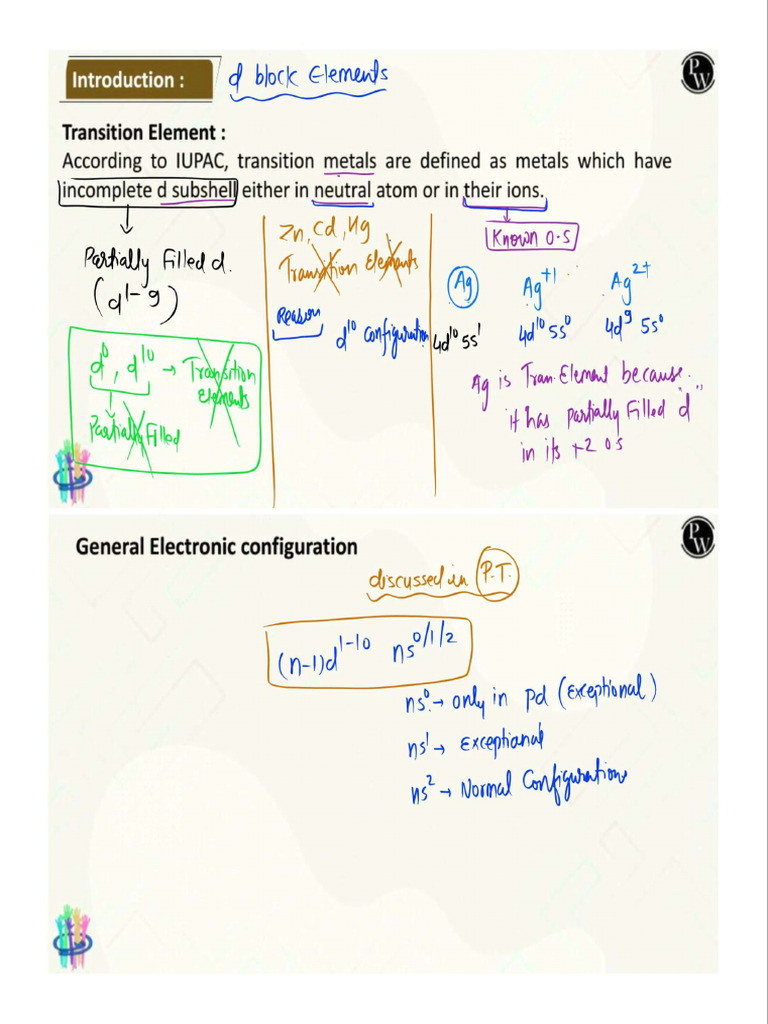 Introduction :
d block Elements
PW
Transition Element :
According to IUPAC, transition metals are defined as metals which have
incomplete d subshell either in neutral atom or in their ions.
Partially Filled d.
(d¹⁻⁹)
d⁰, d¹⁰ → Transition
Elements
Partially Filled
Zn, Cd, Hg
Transition Elements
Reason
d¹⁰ configuration
Known O.S
Ag Ag⁺¹ Ag²⁺
4d¹⁰ 5s¹ 4d¹⁰ 5s⁰ 4d⁹ 5s⁰
Ag is Tran. Element because.
it has partially filled 'd'
in its +2 O.S
PW
General Electronic configuration
discussed in P.T.
(n-1)d¹⁻¹⁰ ns⁰/¹/²
ns⁰ → only in Pd (Exceptional)
ns¹ → Exceptional
ns² → Normal Configurations